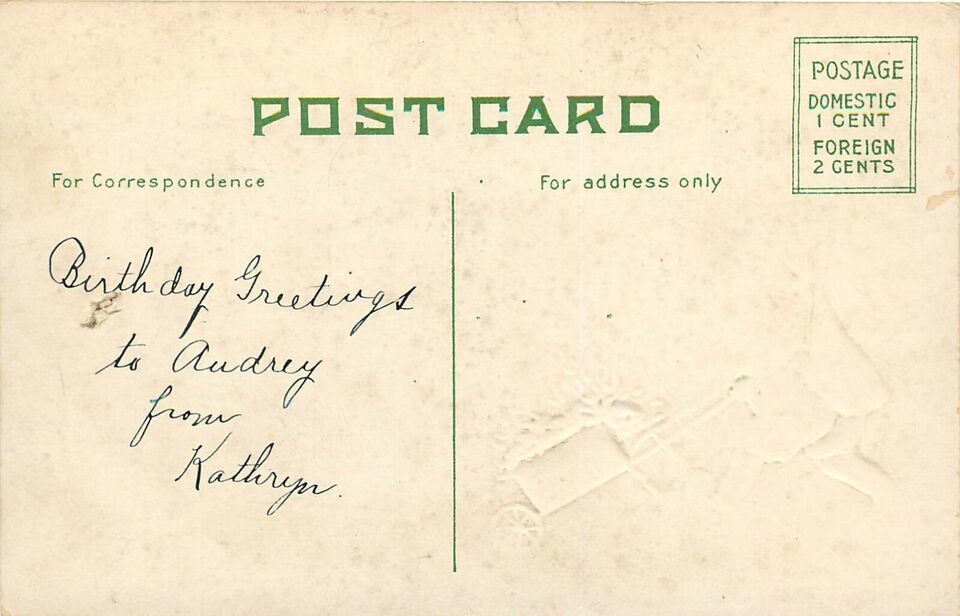 POST CARD
POSTAGE
DOMESTIC
1 CENT
FOREIGN
2 CENTS
For Correspondence
For address only
Birthday Greetings
to Audrey
from
Kathryn.